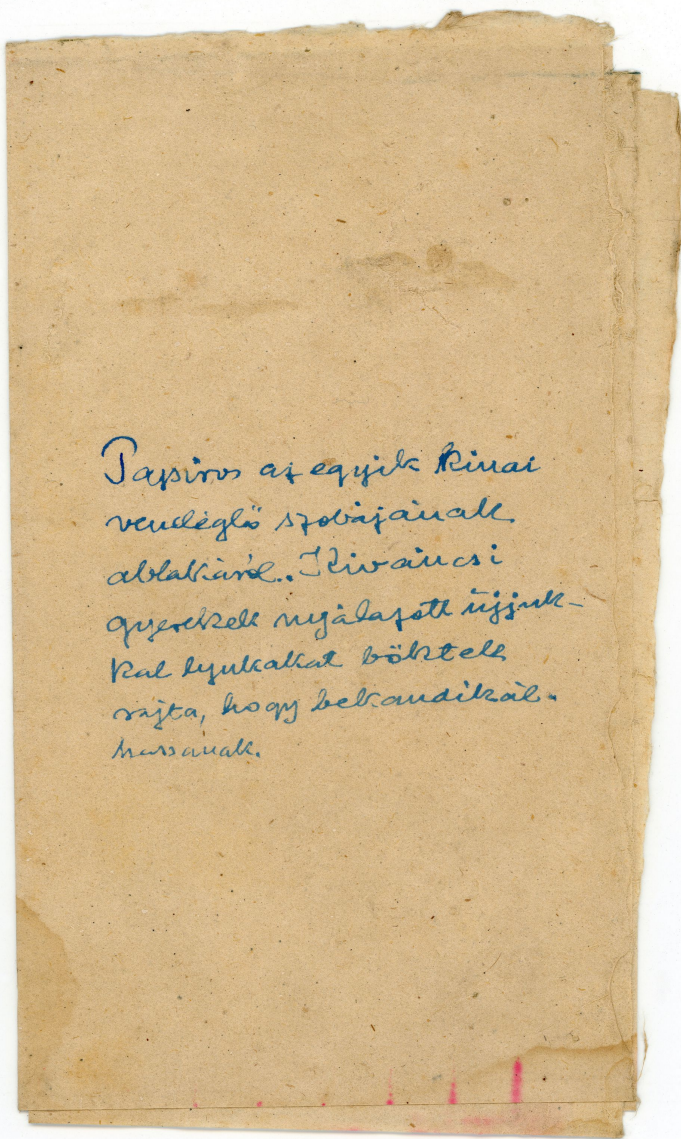 Papiros az egyik kinai
vendéglő szobájának
ablakáról.. Kiváncsi
gyerekek nyálazott újjuk-
kal lyukakat böktek
rajta, hogy bekandikál-
hassanak.